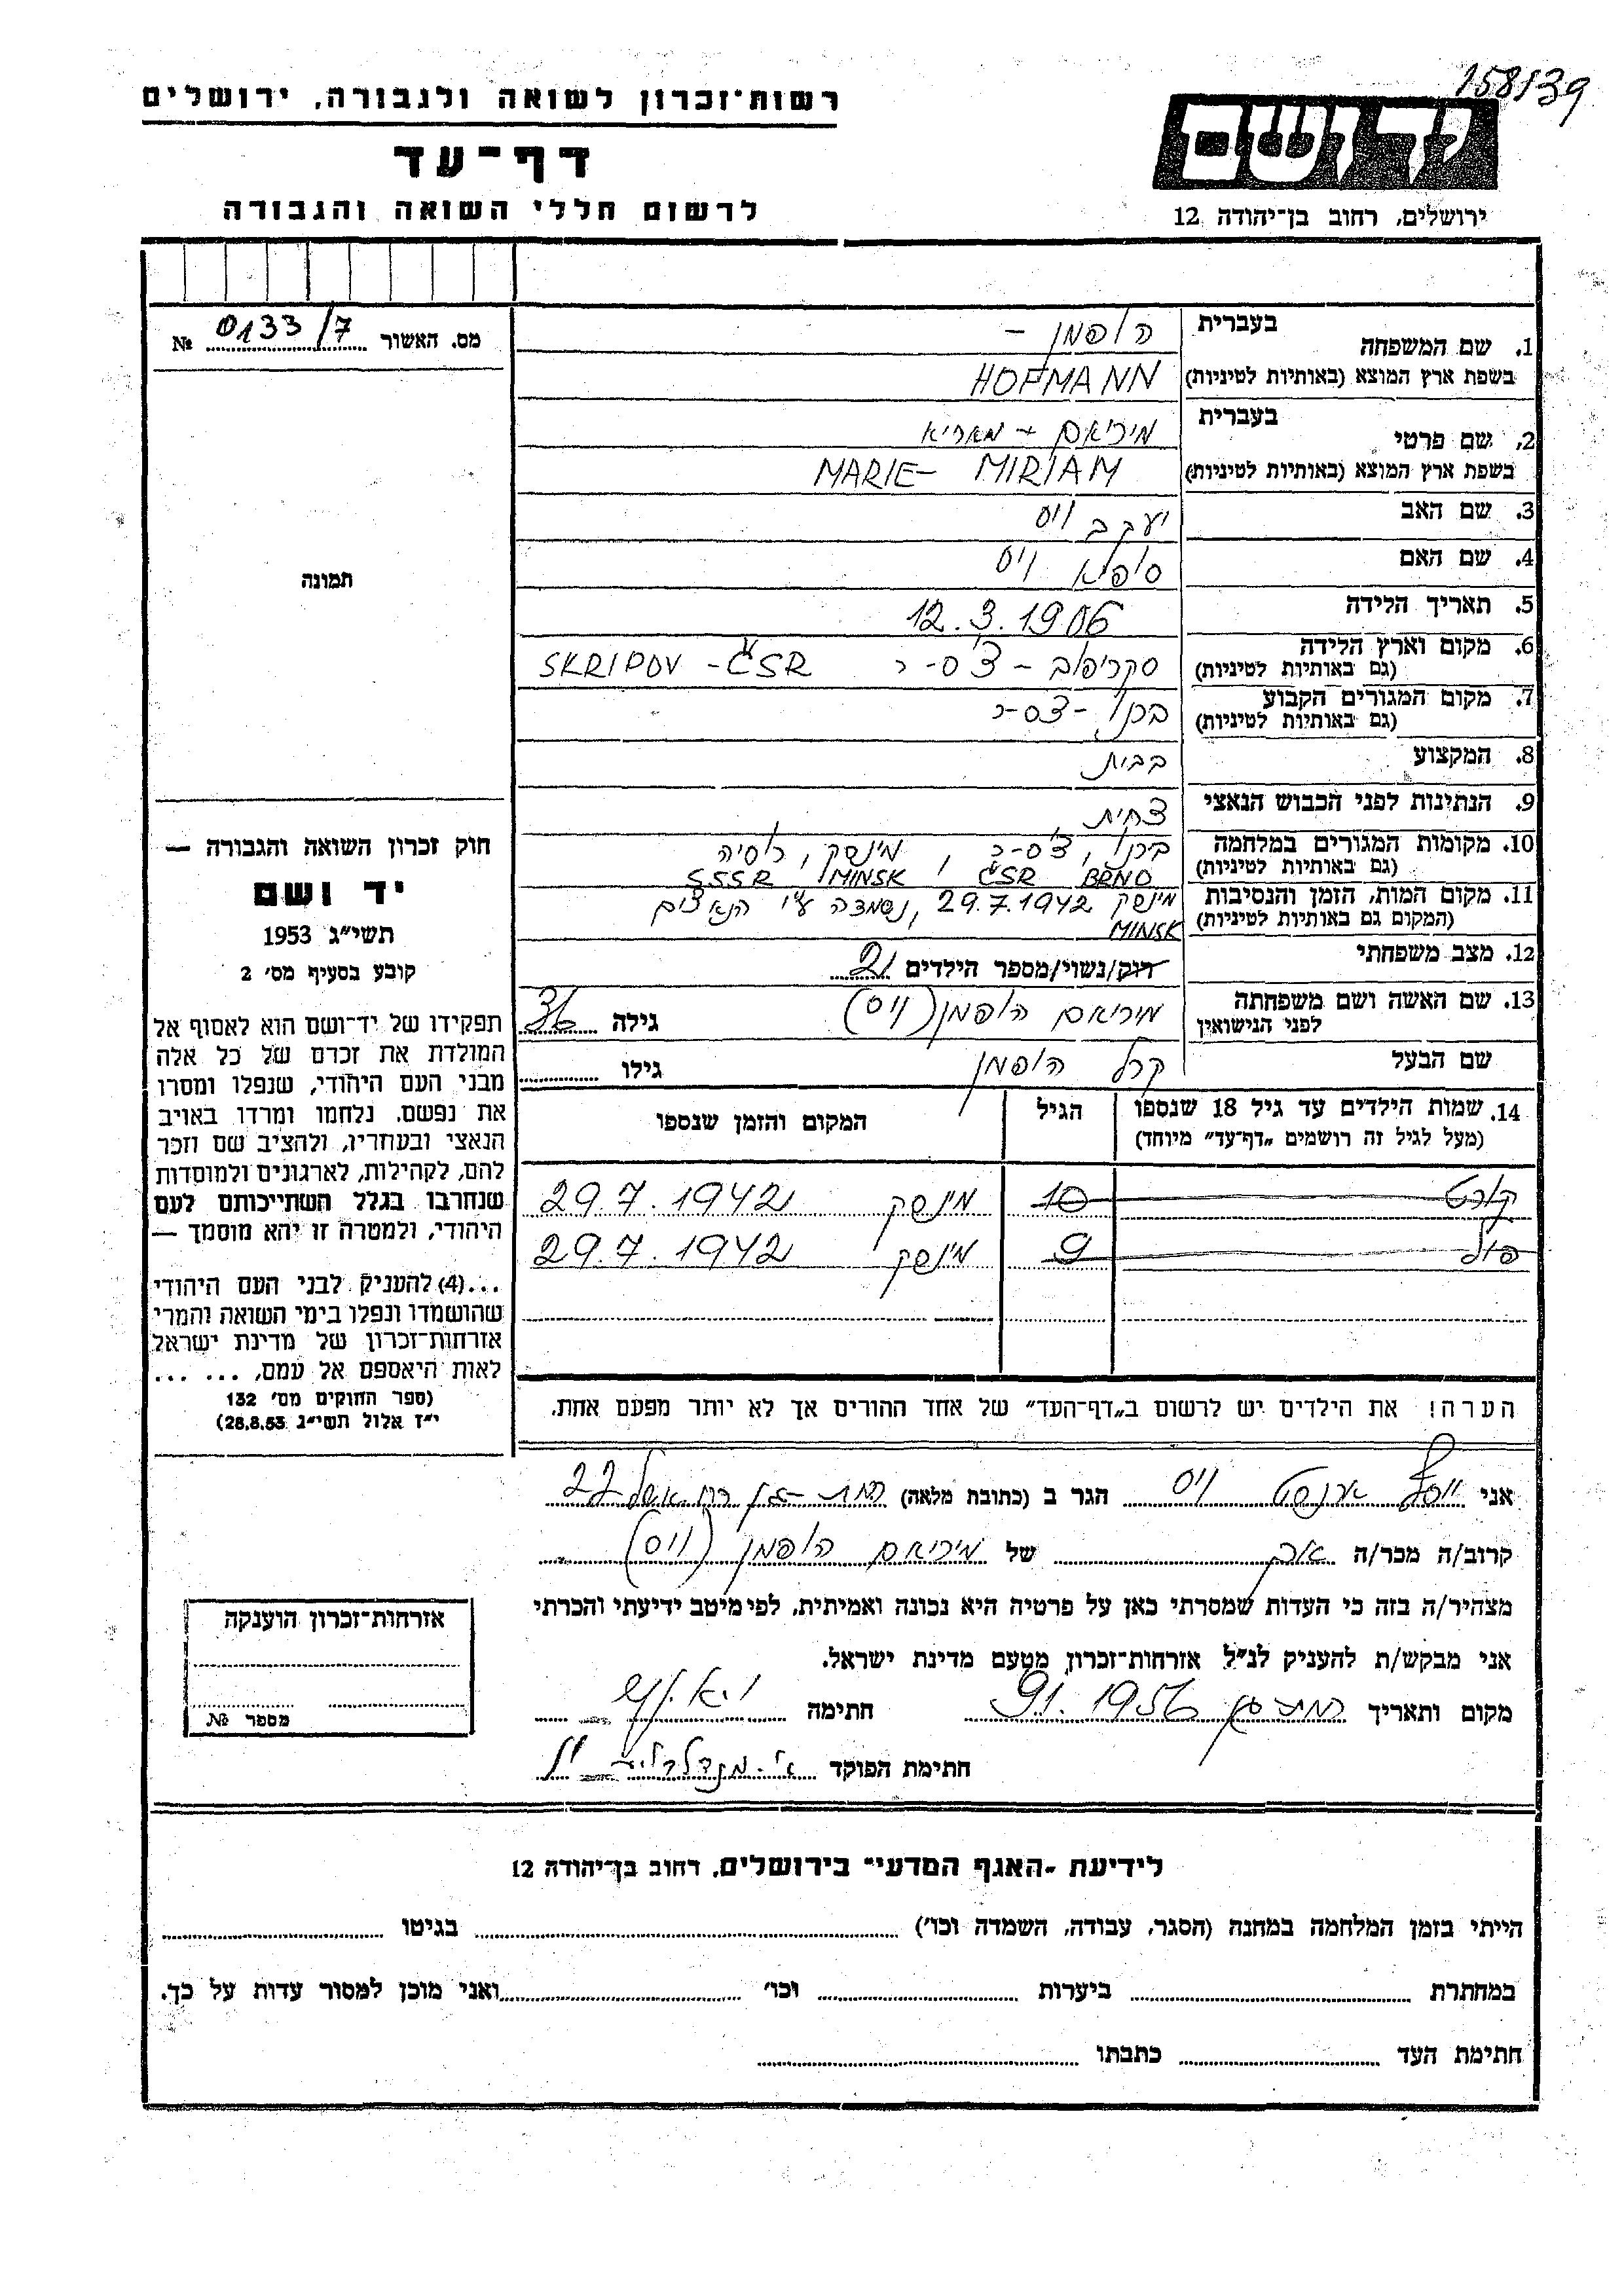 158139
רשות־זכרון לשואה ולגבורה, ירושלים
דף־עד
לרשום חללי השואה והגבורה
יד ושם
ירושלים, רחוב בן־יהודה 12
מס. האשור 0133/7 №
תמונה
חוק זכרון השואה והגבורה —
יד ושם
תשי״ג 1953
קובע בסעיף מס׳ 2
תפקידו של יד־ושם הוא לאסוף אל
המולדת את זכרם של כל אלה
מבני העם היהודי, שנפלו ומסרו
את נפשם, נלחמו ומרדו באויב
הנאצי ובעוזריו, ולהציב שם וזכר
להם, לקהילות, לארגונים ולמוסדות
שנחרבו בגלל השתייכותם לעם
היהודי, ולמטרה זו יהא מוסמך —
...(4) להעניק לבני העם היהודי
שהושמדו ונפלו בימי השואה והמרי
אזרחות־זכרון של מדינת ישראל
לאות היאספם אל עמם, ... ...
(ספר החוקים מס׳ 132
י״ז אלול תשי״ג 28.8.53)
1. שם המשפחה בעברית הופמן -
בשפת ארץ המוצא (באותיות לטיניות) HOFMANN
2. שם פרטי בעברית מיריאם - מאריא
בשפת ארץ המוצא (באותיות לטיניות) MARIE- MIRIAM
3. שם האב יעקב ויס
4. שם האם סופיא ויס
5. תאריך הלידה 12.3.1906
6. מקום וארץ הלידה (גם באותיות לטיניות) סקריפוב - צ'ס-ר SKRIPOV - ČSR
7. מקום המגורים הקבוע (גם באותיות לטיניות) ברנו - צ'ס-ר
8. המקצוע בבית
9. הנתינות לפני הכבוש הנאצי צ'כית
10. מקומות המגורים במלחמה (גם באותיות לטיניות) ברנו, צ'ס-ר, מינסק, רוסיה
BRNO ČSR, MINSK SSSR
11. מקום המות, הזמן והנסיבות (המקום גם באותיות לטיניות) מינסק 29.7.1942, נשמדה ע״י הנאצים
MINSK
12. מצב משפחתי רווק/נשוי/מספר הילדים 2
13. שם האשה ושם משפחתה לפני הנישואין מיריאם הופמן (ויס) גילה 36
שם הבעל קרל הופמן גילו
14. שמות הילדים עד גיל 18 שנספו הגיל המקום והזמן שנספו
(מעל לגיל זה רושמים „דף־עד״ מיוחד)
קורט 10 מינסק 29.7.1942
פול 9 מינסק 29.7.1942
הערה! את הילדים יש לרשום ב„דף־העד״ של אחד ההורים אך לא יותר מפעם אחת.
אני יוסף ארנסט ויס הגר ב (כתובת מלאה) רמת-גן 22
קרוב/ה מכר/ה אח של מיריאם הופמן (ויס)
מצהיר/ה בזה כי העדות שמסרתי כאן על פרטיה היא נכונה ואמיתית, לפי מיטב ידיעתי והכרתי
אני מבקש/ת להעניק לנ״ל אזרחות־זכרון מטעם מדינת ישראל.
מקום ותאריך רמת גן 9.1.1956 חתימה
חתימת הפוקד
אזרחות־זכרון הוענקה
מספר №
לידיעת „האגף המדעי״ בירושלים, רחוב בן־יהודה 12
הייתי בזמן המלחמה במחנה (הסגר, עבודה, השמדה וכו׳) בגיטו
במחתרת ביערות וכו׳ ואני מוכן למסור עדות על כך.
חתימת העד כתבתו